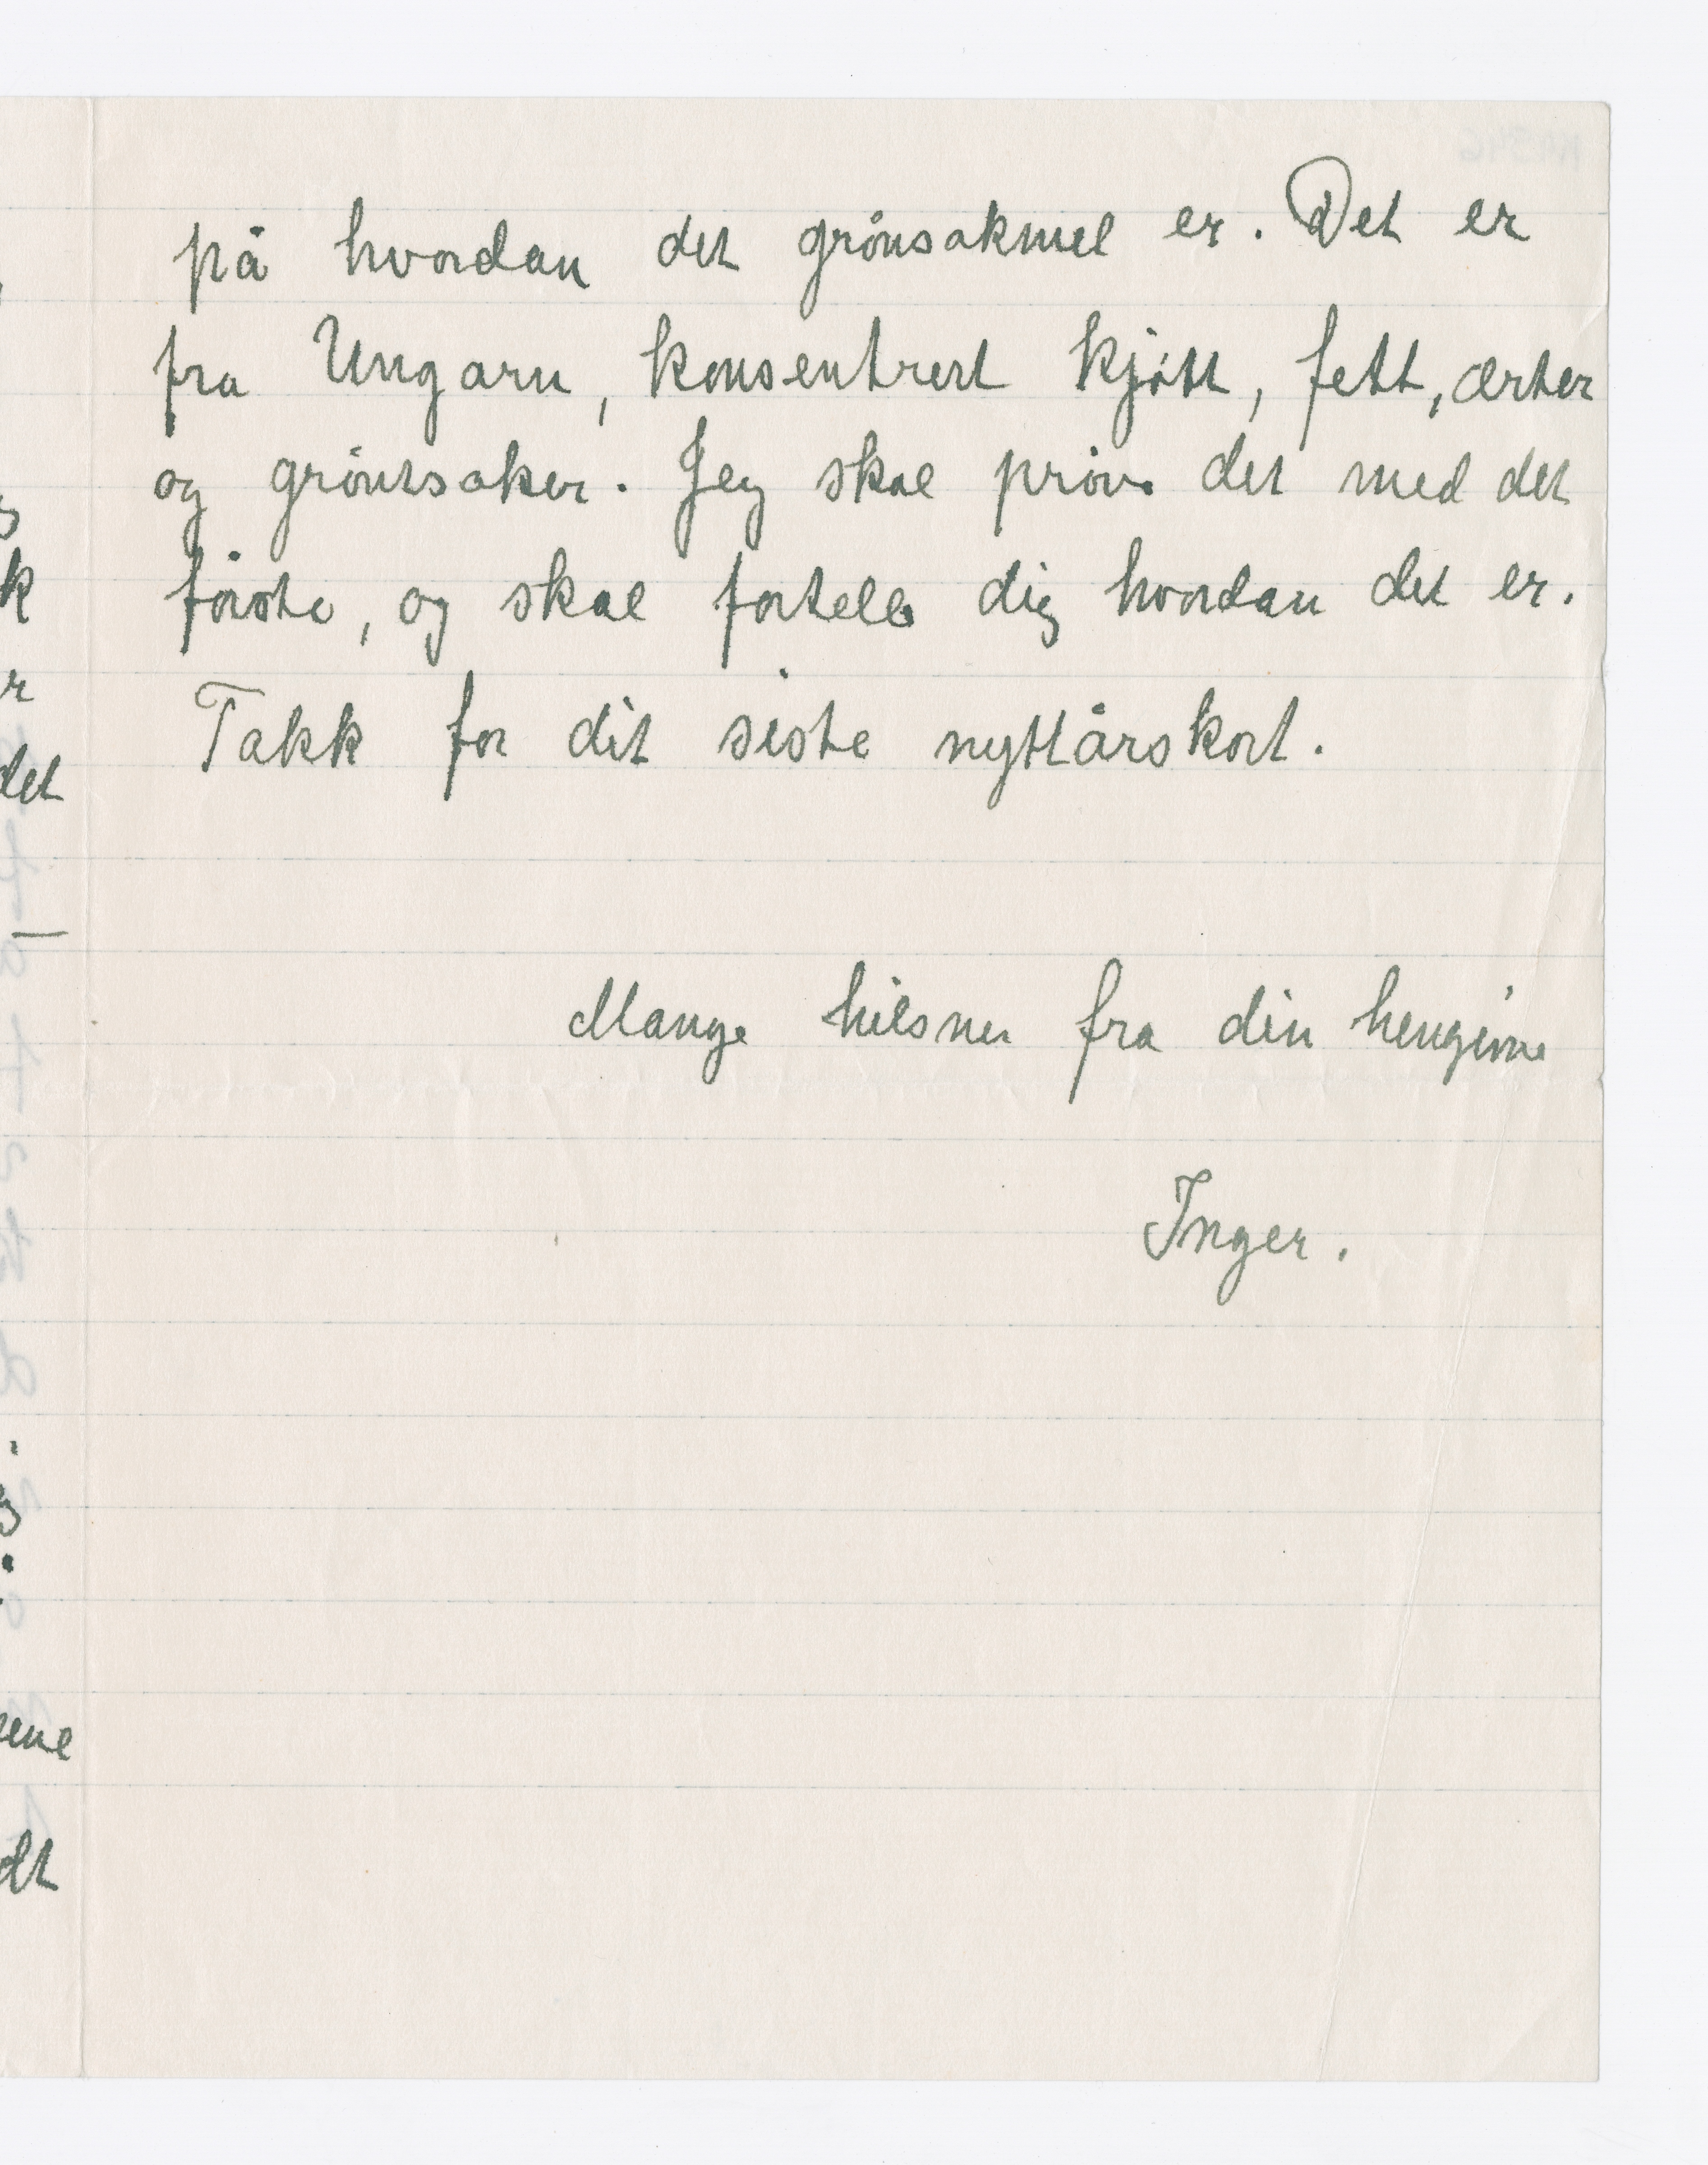 på hvordan det grønsakmel er. Det er
fra Ungarn, konsentrert kjøtt, fett, ærter
og grøntsaker. Jeg skal prøve det med det
første, og skal fortelle dig hvordan det er.
Takk for dit siste nyttårskort.
Mange hilsner fra din hengivne
Inger.
k
r
det
dt